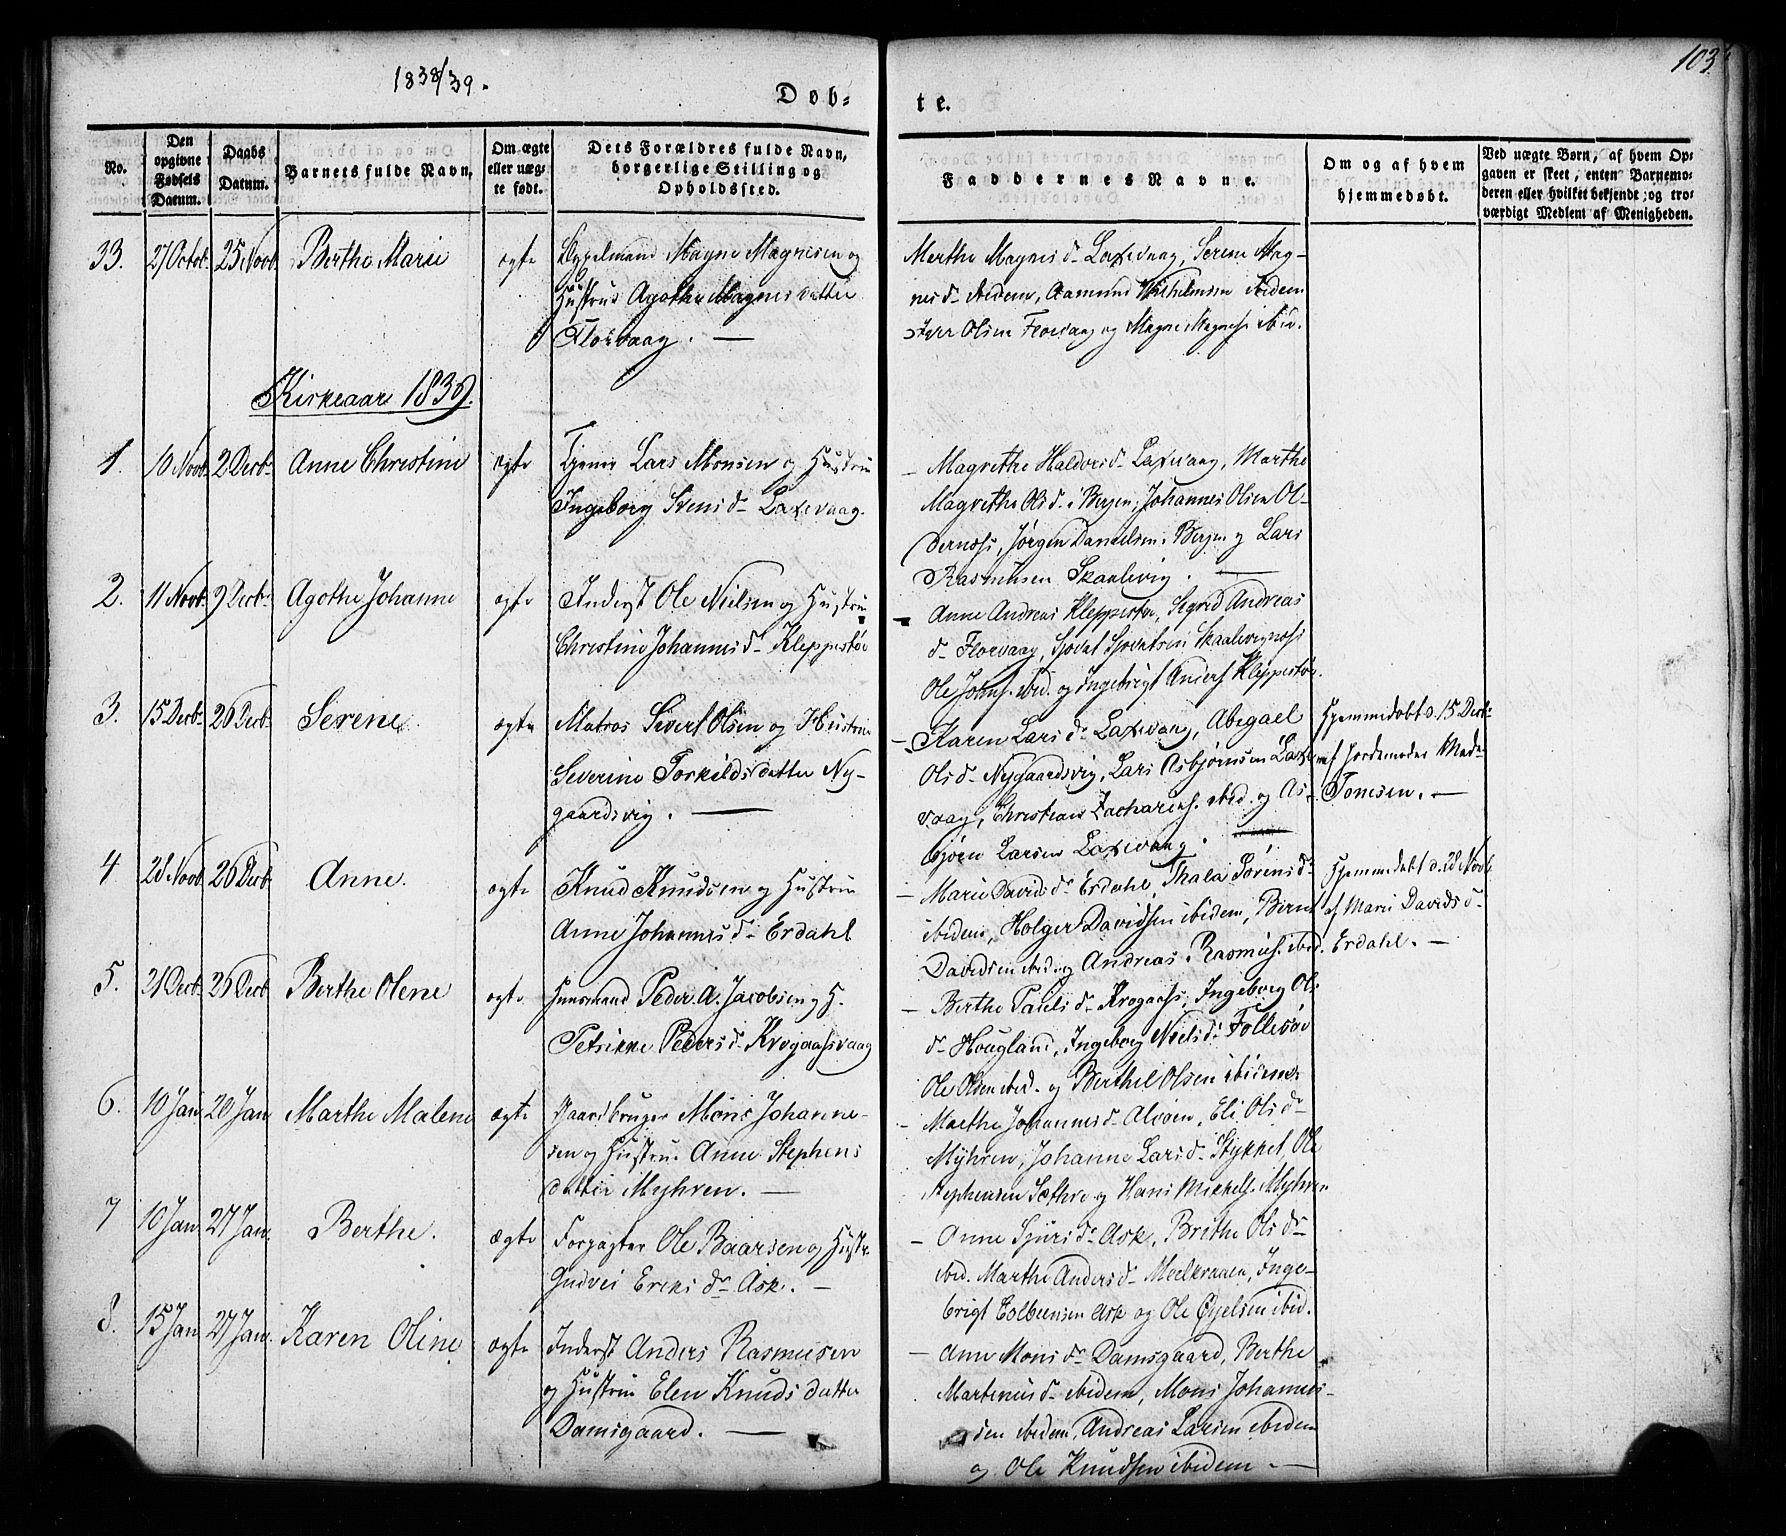 1838/39.
Dob-
te.
103
No.
Den opgivne Fødsels Datum.
Daabs Datum.
Barnets fulde Navn.
Om ægte eller uæg- te født.
Dets Forældres fulde Navn, borgerlige Stilling og Opholdssted.
Faddernes Navne.
Om og af hvem hjemmedøbt.
Ved uægte Børn, af hvem Op- gaven er skeet, enten Barnemo- deren eller hvilket bekjendt og tro- værdigt Medlem af Menigheden.
33. 27 Octob. 25 Novb. Berthe Marie ægte Magne Magnesen og
Hustrue Agathe Magnesdatter
Florvaag. —
Merthe Magnesd. Laxevaag, Serine Mag-
nesd. ibidem, Aamund Wilhelmsen ibidem
Iver Olsen Florvaag og Magne Magnes. ibid.
Kirkeaar 1839.
1. 10 Novb. 2 Decb. Anne Christine ægte Tjener Lars Monsen og Hustrue
Ingeborg Svensd. Laxevaag.
— Magrethe Haldorsd. Laxevaag, Marthe
Magrethe Olsd. i Bergen, Johannes Olsen Ol-
dernæss, Jørgen Danielsen i Bergen og Lars
Rasmusen Skaalevig. —
2. 11 Novb. 9 Decb. Agathe Johanne ægte Inderst Ole Nielsen og Hustrue
Christine Johannesd. Kleppestøe
Anne Andreas Kleppestøe, Sigrid Andreas
d. Florvaag, Sjovat Sjovatsen Skaalevignæss
Ole Johns. ibid. og Ingebrigt Anders. Kleppestøe.
3. 15 Decb. 26 Decb. Serene. ægte Matros Sivert Olsen og Hustrue
Severine Torkildsdatter Ny-
gaardsvig. —
— Karen Larsd. Laxevaag, Abegael
Olsd. Nygaardsvig, Lars Asbjørnsen Laxe-
vaag, Christian Zacharias. ibid. og As-
bjørn Larsen Laxevaag.
Hjemmedøbt d. 15 Decb.
af Jordemoder Mad.
Tonesen. —
4 28 Novb. 26 Decb. Anne. ægte Knud Knudsen og Hustrue
Anne Johannesd. Erdahl
— Marie Davidsd. Erdahl, Thala Sørensd.
ibidem, Holger Davidsen ibidem, Bernt
Davidsen ibid. og Andreas Rasmus. ibid.
Hjemmedøbt d. 28 Novb.
af Marie Davidsd.
Erdahl. —
5. 21 Decb. 26 Decb. Berthe Olene ægte Huusmand Peder A. Jacobsen og H.
Petrikke Pedersd. Krogaasvaag
— Berthe Paulsd. Krogaas, Ingeborg Ols
d. Hougland, Ingeborg Nielsd. Follesøe
Ole Olsen ibid. og Berthel Olsen ibidem.
6. 10 Jan. 20 Jan. Marthe Malene ægte Gaardbruger Mons Johanne-
sen og Hustrue Anne Stephens
datter Myhren. —
- Marthe Johannesd. Alvøen, Eli Olsd.
Myhren, Johanne Larsd. Stykket, Ole
Stephensen Sæthre og Hans Mickels. Myhren
7 10 Jan. 27 Jan. Berthe. ægte Forpagter Ole Baarsen og Hustr.
Gudvei Eriksd. Ask. —
— Anne Sjursd. Ask, Brithe Olsd.
ibid. Marthe Andersd. Meelkraaen, Inge-
brigt Colbensen Ask og Ole ibid.
8. 15 Jan. 27 Jan. Karen Oline ægte Inderst Anders Rasmusen
og Hustrue Elen Knudsdatter
Damsgaard. —
— Anne Monsd. Damsgaard, Berthe
Martinusd. ibidem, Mons Johannes-
sen ibidem, Andreas Larsen ibidem
og Ole Knudsen ibidem. —